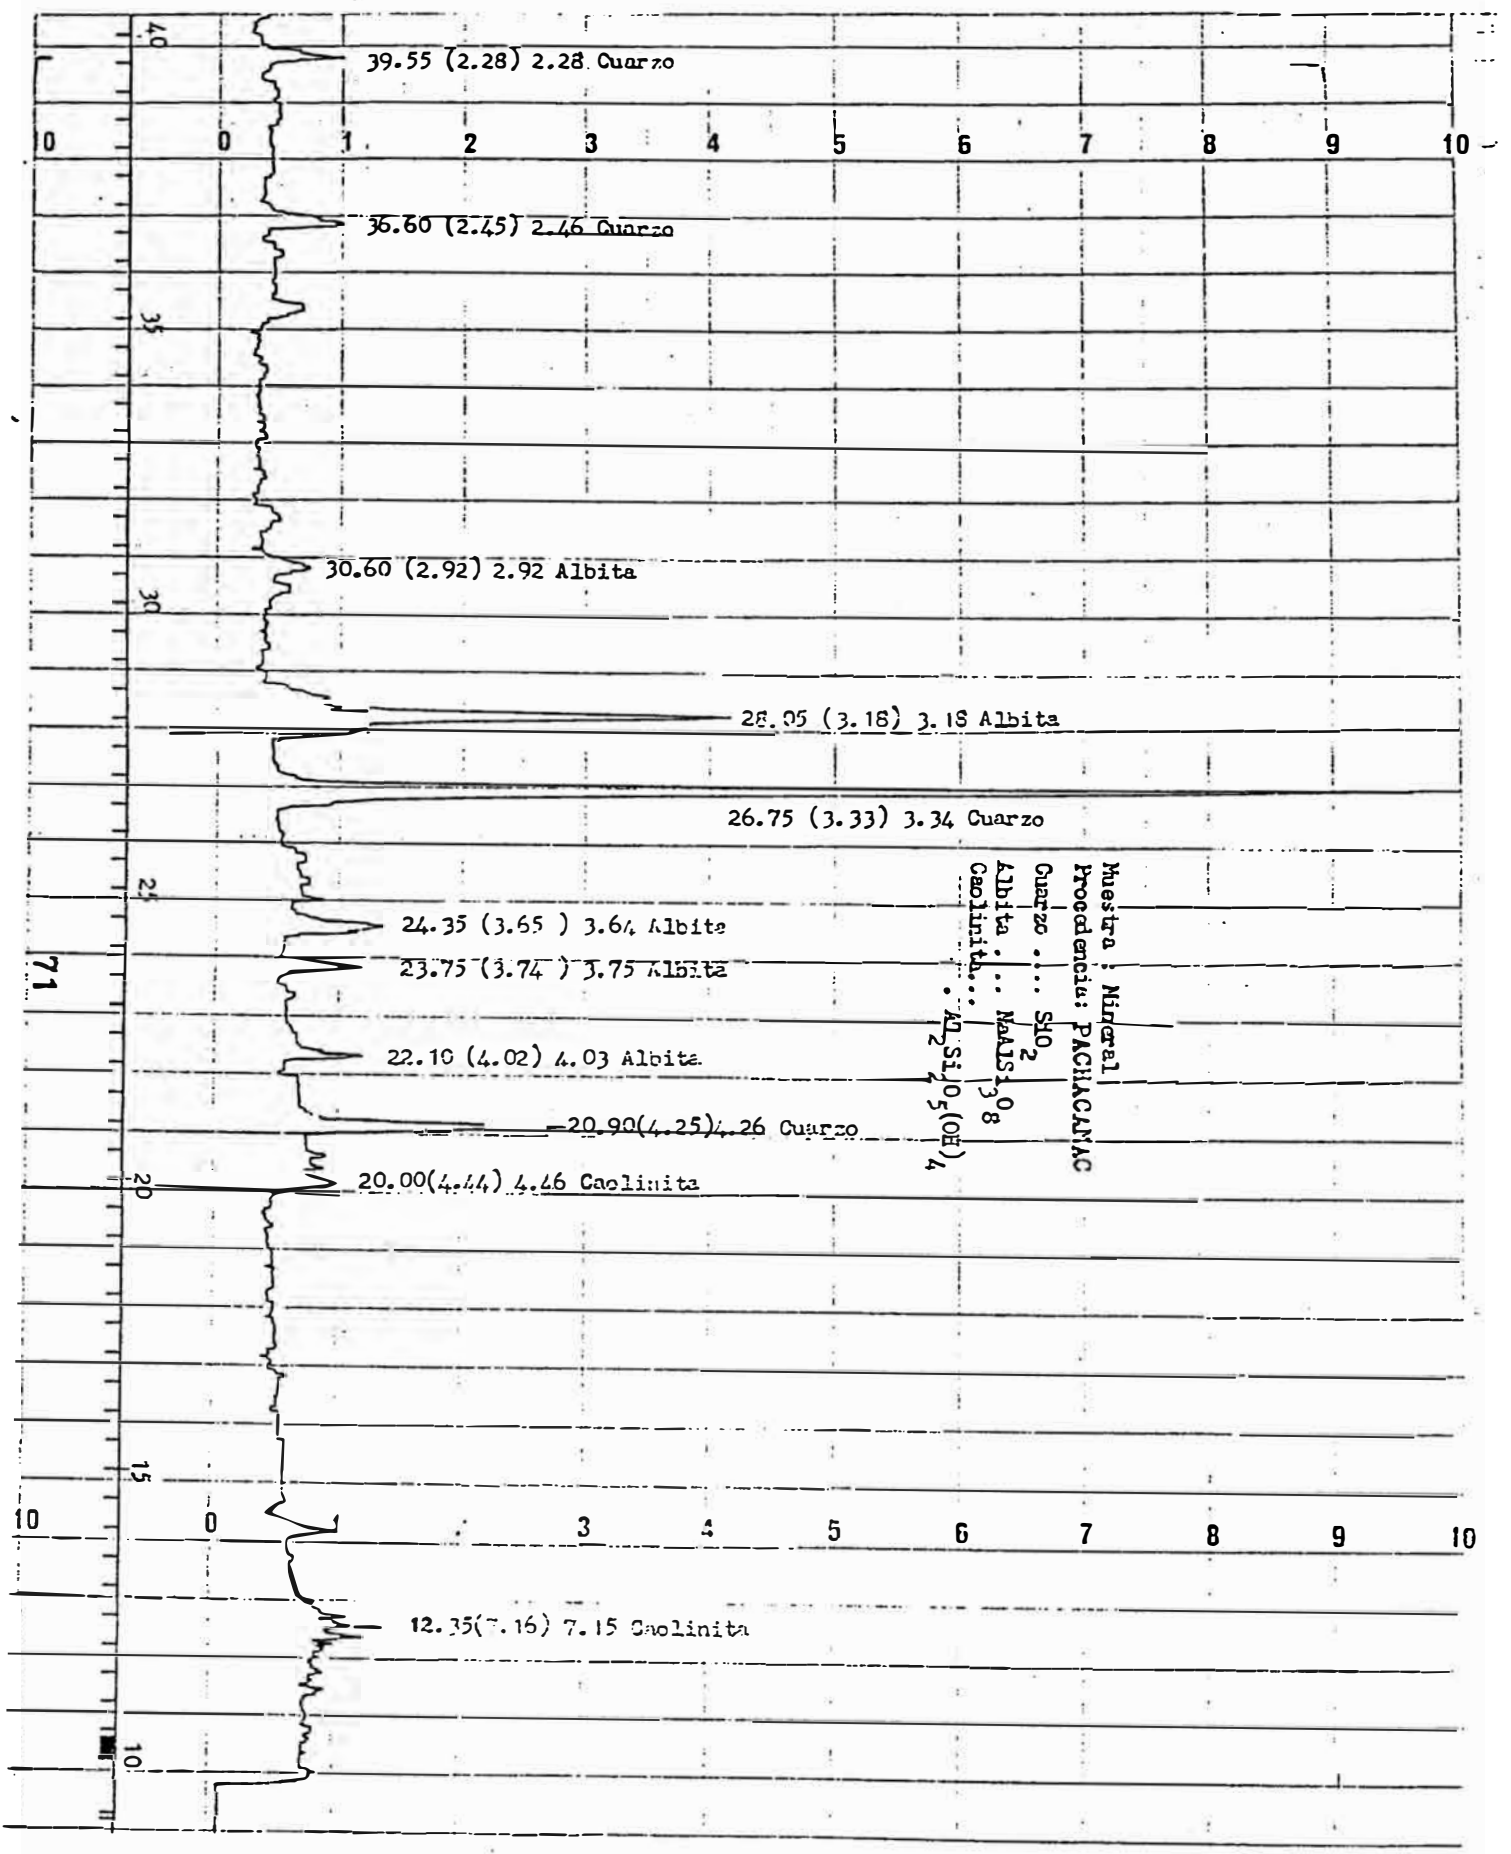 40
39.55 (2.28) 2.28 Cuarzo
10 0 1 2 3 4 5 6 7 8 9 10
36.60 (2.45) 2.46 Cuarzo
35
30.60 (2.92) 2.92 Albita
30
28.05 (3.18) 3.18 Albita
26.75 (3.33) 3.34 Cuarzo
25
24.35 (3.65 ) 3.64 Albita
23.75 (3.74 ) 3.75 Albita
71
22.10 (4.02) 4.03 Albita
20.90(4.25)4.26 Cuarzo
20.00(4.44) 4.46 Caolinita
20
Muestra : Mineral
Procedencia: PACHACAMAC
Cuarzo .... SiO2
Albita .... NaAlSi3O8
Caolinita... . Al2Si2O5(OH)4
15
10 0 1 3 4 5 6 7 8 9 10
12.35(7.16) 7.15 Caolinita
10